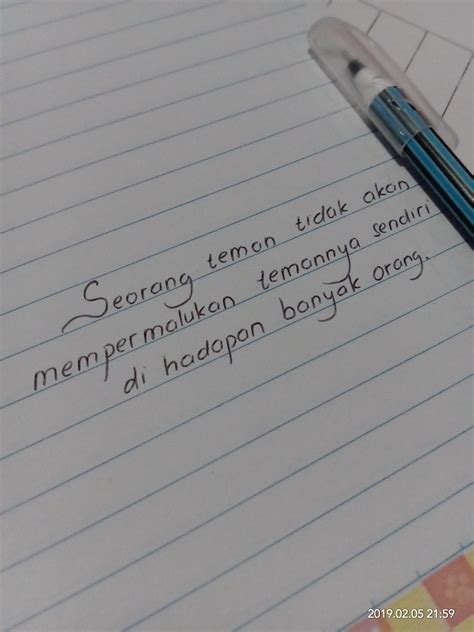 Seorang teman tidak akan
mempermalukan temannya sendiri
di hadapan banyak orang.
2019.02.05 21:59